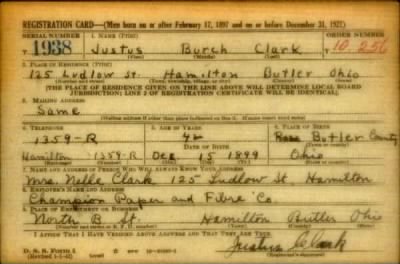 REGISTRATION CARD—(Men born on or after February 17, 1897 and on or before December 31, 1921)
SERIAL NUMBER 1. NAME (Print) ORDER NUMBER
T 1938 Justus Burch Clark T 10,256
(First) (Middle) (Last)
2. PLACE OF RESIDENCE (Print)
125 Ludlow St. Hamilton Butler Ohio
(Number and street) (Town, township, village, or city) (County) (State)
[THE PLACE OF RESIDENCE GIVEN ON THE LINE ABOVE WILL DETERMINE LOCAL BOARD
JURISDICTION; LINE 2 OF REGISTRATION CERTIFICATE WILL BE IDENTICAL]
3. MAILING ADDRESS
Same
[Mailing address if other than place indicated on line 2. If same insert word same]
4. TELEPHONE 5. AGE IN YEARS 6. PLACE OF BIRTH
1359-R 42 Butler County
DATE OF BIRTH
Hamilton 1359-R Dec 15 1899 Ohio
7. NAME AND ADDRESS OF PERSON WHO WILL ALWAYS KNOW YOUR ADDRESS
Mrs. Nelle Clark 125 Ludlow St Hamilton
8. EMPLOYER'S NAME AND ADDRESS
Champion Paper and Fibre Co.
9. PLACE OF EMPLOYMENT OR BUSINESS
North B St. Hamilton Butler Ohio
(Number and street or R. F. D. number) (Town) (County) (State)
I AFFIRM THAT I HAVE VERIFIED ABOVE ANSWERS AND THAT THEY ARE TRUE.
D. S. S. Form 1
(Revised 1-1-42) (over)
Justus B Clark